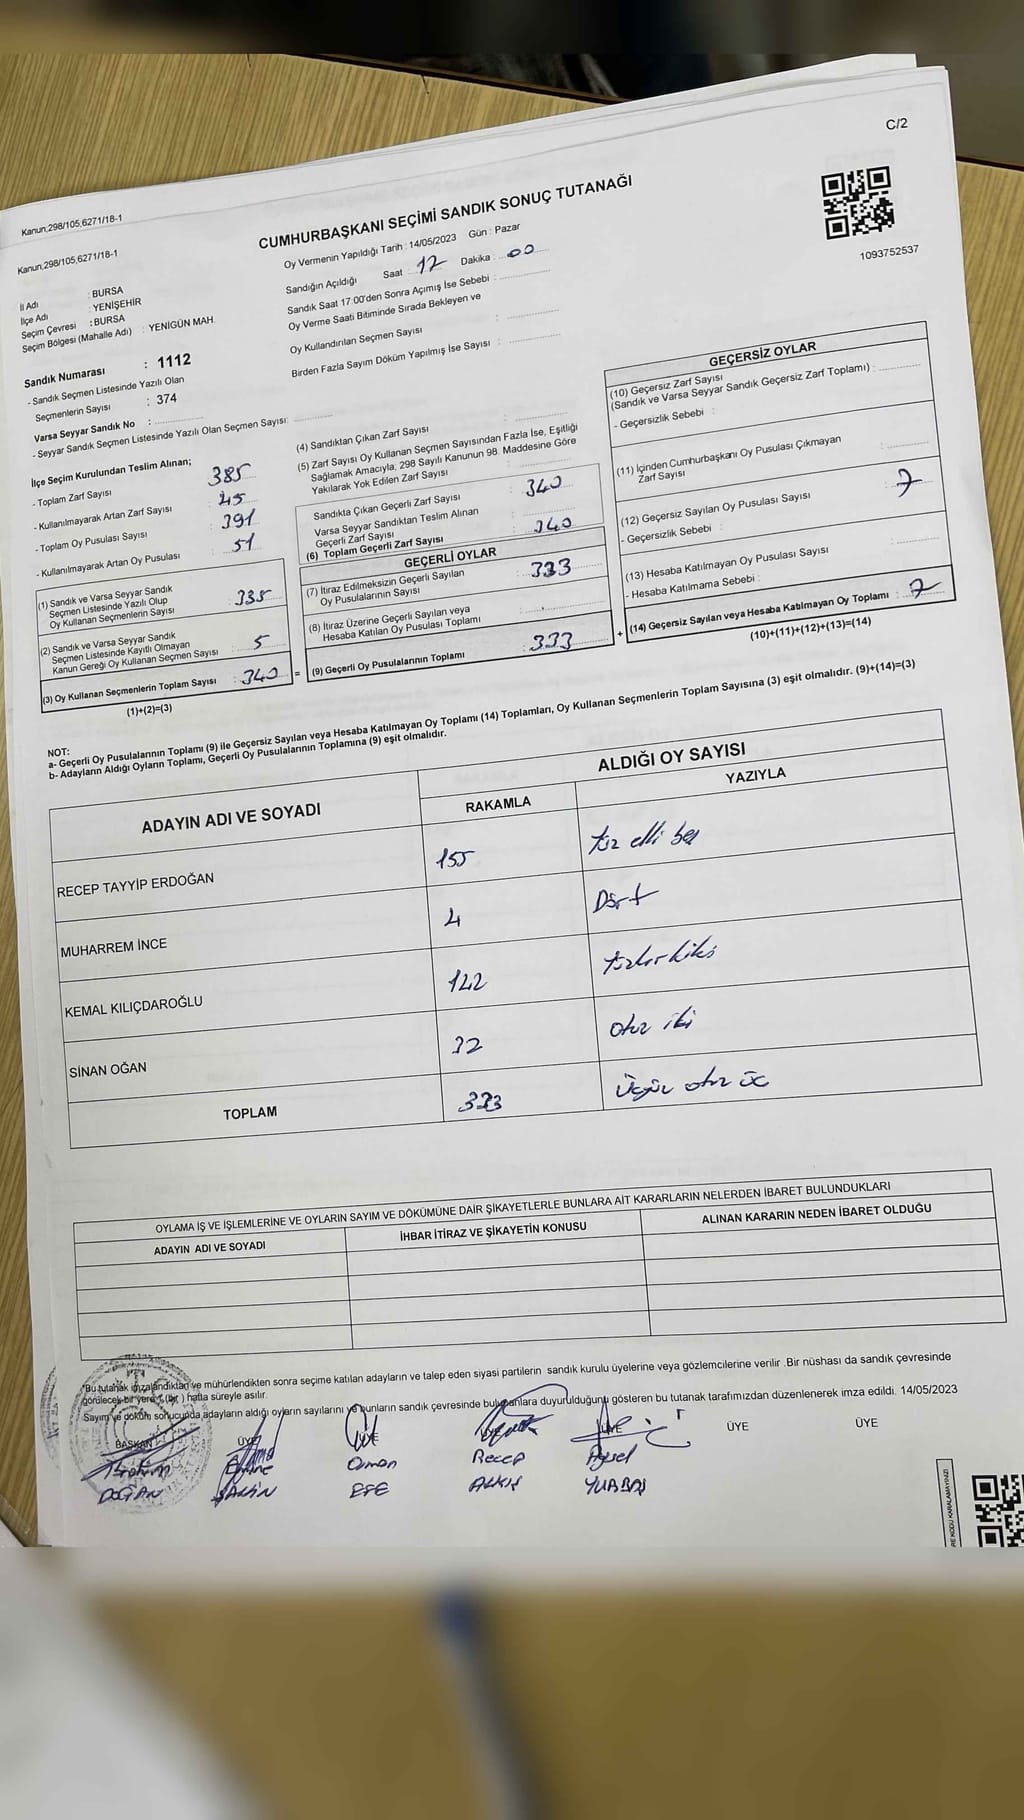 C/2
Kanun;298/105,6271/18-1
CUMHURBAŞKANI SEÇİMİ SANDIK SONUÇ TUTANAĞI
1093752537
Kanun;298/105,6271/18-1
Oy Vermenin Yapıldığı Tarih : 14/05/2023 Gün : Pazar
Sandığın Açıldığı Saat : 17 Dakika : 00
Sandık Saat 17:00'den Sonra Açımış İse Sebebi :
Oy Verme Saati Bitiminde Sırada Bekleyen ve
Oy Kullandırılan Seçmen Sayısı :
Birden Fazla Sayım Döküm Yapılmış İse Sayısı :
İl Adı : BURSA
İlçe Adı : YENİŞEHİR
Seçim Çevresi : BURSA
Seçim Bölgesi (Mahalle Adı) : YENİGÜN MAH.
Sandık Numarası : 1112
- Sandık Seçmen Listesinde Yazılı Olan
Seçmenlerin Sayısı : 374
Varsa Seyyar Sandık No :
- Seyyar Sandık Seçmen Listesinde Yazılı Olan Seçmen Sayısı:
İlçe Seçim Kurulundan Teslim Alınan;
- Toplam Zarf Sayısı : 385
- Kullanılmayarak Artan Zarf Sayısı : 45
- Toplam Oy Pusulası Sayısı : 391
- Kullanılmayarak Artan Oy Pusulası : 51
(1) Sandık ve Varsa Seyyar Sandık
Seçmen Listesinde Yazılı Olup
Oy Kullanan Seçmenlerin Sayısı : 335
(2) Sandık ve Varsa Seyyar Sandık
Seçmen Listesinde Kayıtlı Olmayan
Kanun Gereği Oy Kullanan Seçmen Sayısı : 5
(3) Oy Kullanan Seçmenlerin Toplam Sayısı : 340
(1)+(2)=(3)
(4) Sandıktan Çıkan Zarf Sayısı :
(5) Zarf Sayısı Oy Kullanan Seçmen Sayısından Fazla İse, Eşitliği
Sağlamak Amacıyla, 298 Sayılı Kanunun 98. Maddesine Göre
Yakılarak Yok Edilen Zarf Sayısı :
Sandıkta Çıkan Geçerli Zarf Sayısı : 340
Varsa Seyyar Sandıktan Teslim Alınan
Geçerli Zarf Sayısı :
(6) Toplam Geçerli Zarf Sayısı : 340
GEÇERLİ OYLAR
(7) İtiraz Edilmeksizin Geçerli Sayılan
Oy Pusulalarının Sayısı : 333
(8) İtiraz Üzerine Geçerli Sayılan veya
Hesaba Katılan Oy Pusulası Toplamı :
= (9) Geçerli Oy Pusulalarının Toplamı : 333
GEÇERSİZ OYLAR
(10) Geçersiz Zarf Sayısı
(Sandık ve Varsa Seyyar Sandık Geçersiz Zarf Toplamı) :
- Geçersizlik Sebebi :
(11) İçinden Cumhurbaşkanı Oy Pusulası Çıkmayan
Zarf Sayısı :
(12) Geçersiz Sayılan Oy Pusulası Sayısı : 7
- Geçersizlik Sebebi :
(13) Hesaba Katılmayan Oy Pusulası Sayısı :
- Hesaba Katılmama Sebebi :
+ (14) Geçersiz Sayılan veya Hesaba Katılmayan Oy Toplamı : 7
(10)+(11)+(12)+(13)=(14)
NOT:
a- Geçerli Oy Pusulalarının Toplamı (9) ile Geçersiz Sayılan veya Hesaba Katılmayan Oy Toplamı (14) Toplamları, Oy Kullanan Seçmenlerin Toplam Sayısına (3) eşit olmalıdır. (9)+(14)=(3)
b- Adayların Aldığı Oyların Toplamı, Geçerli Oy Pusulalarının Toplamına (9) eşit olmalıdır.
ADAYIN ADI VE SOYADI
ALDIĞI OY SAYISI
RAKAMLA YAZIYLA
RECEP TAYYİP ERDOĞAN 155 Yüz elli beş
MUHARREM İNCE 4 Dört
KEMAL KILIÇDAROĞLU 142 Yüzkırkiki
SİNAN OĞAN 32 Otuz iki
TOPLAM 333 Üçyüz otuz üç
OYLAMA İŞ VE İŞLEMLERİNE VE OYLARIN SAYIM VE DÖKÜMÜNE DAİR ŞİKAYETLERLE BUNLARA AİT KARARLARIN NELERDEN İBARET BULUNDUKLARI
ADAYIN ADI VE SOYADI İHBAR İTİRAZ VE ŞİKAYETİN KONUSU ALINAN KARARIN NEDEN İBARET OLDUĞU
"Bu tutanak imzalandıktan ve mühürlendikten sonra seçime katılan adayların ve talep eden siyasi partilerin sandık kurulu üyelerine veya gözlemcilerine verilir .Bir nüshası da sandık çevresinde
görülecek bir yere (bir ) hafta süreyle asılır.
Sayım ve döküm sonucunda adayların aldığı oyların sayılarını ve bunların sandık çevresinde bulunanlara duyurulduğunu gösteren bu tutanak tarafımızdan düzenlenerek imza edildi. 14/05/2023
BAŞKAN ÜYE ÜYE ÜYE ÜYE ÜYE ÜYE
İbrahim Emine Osman Recep Aysel
DOĞAN ŞAHİN EFE ALKIŞ